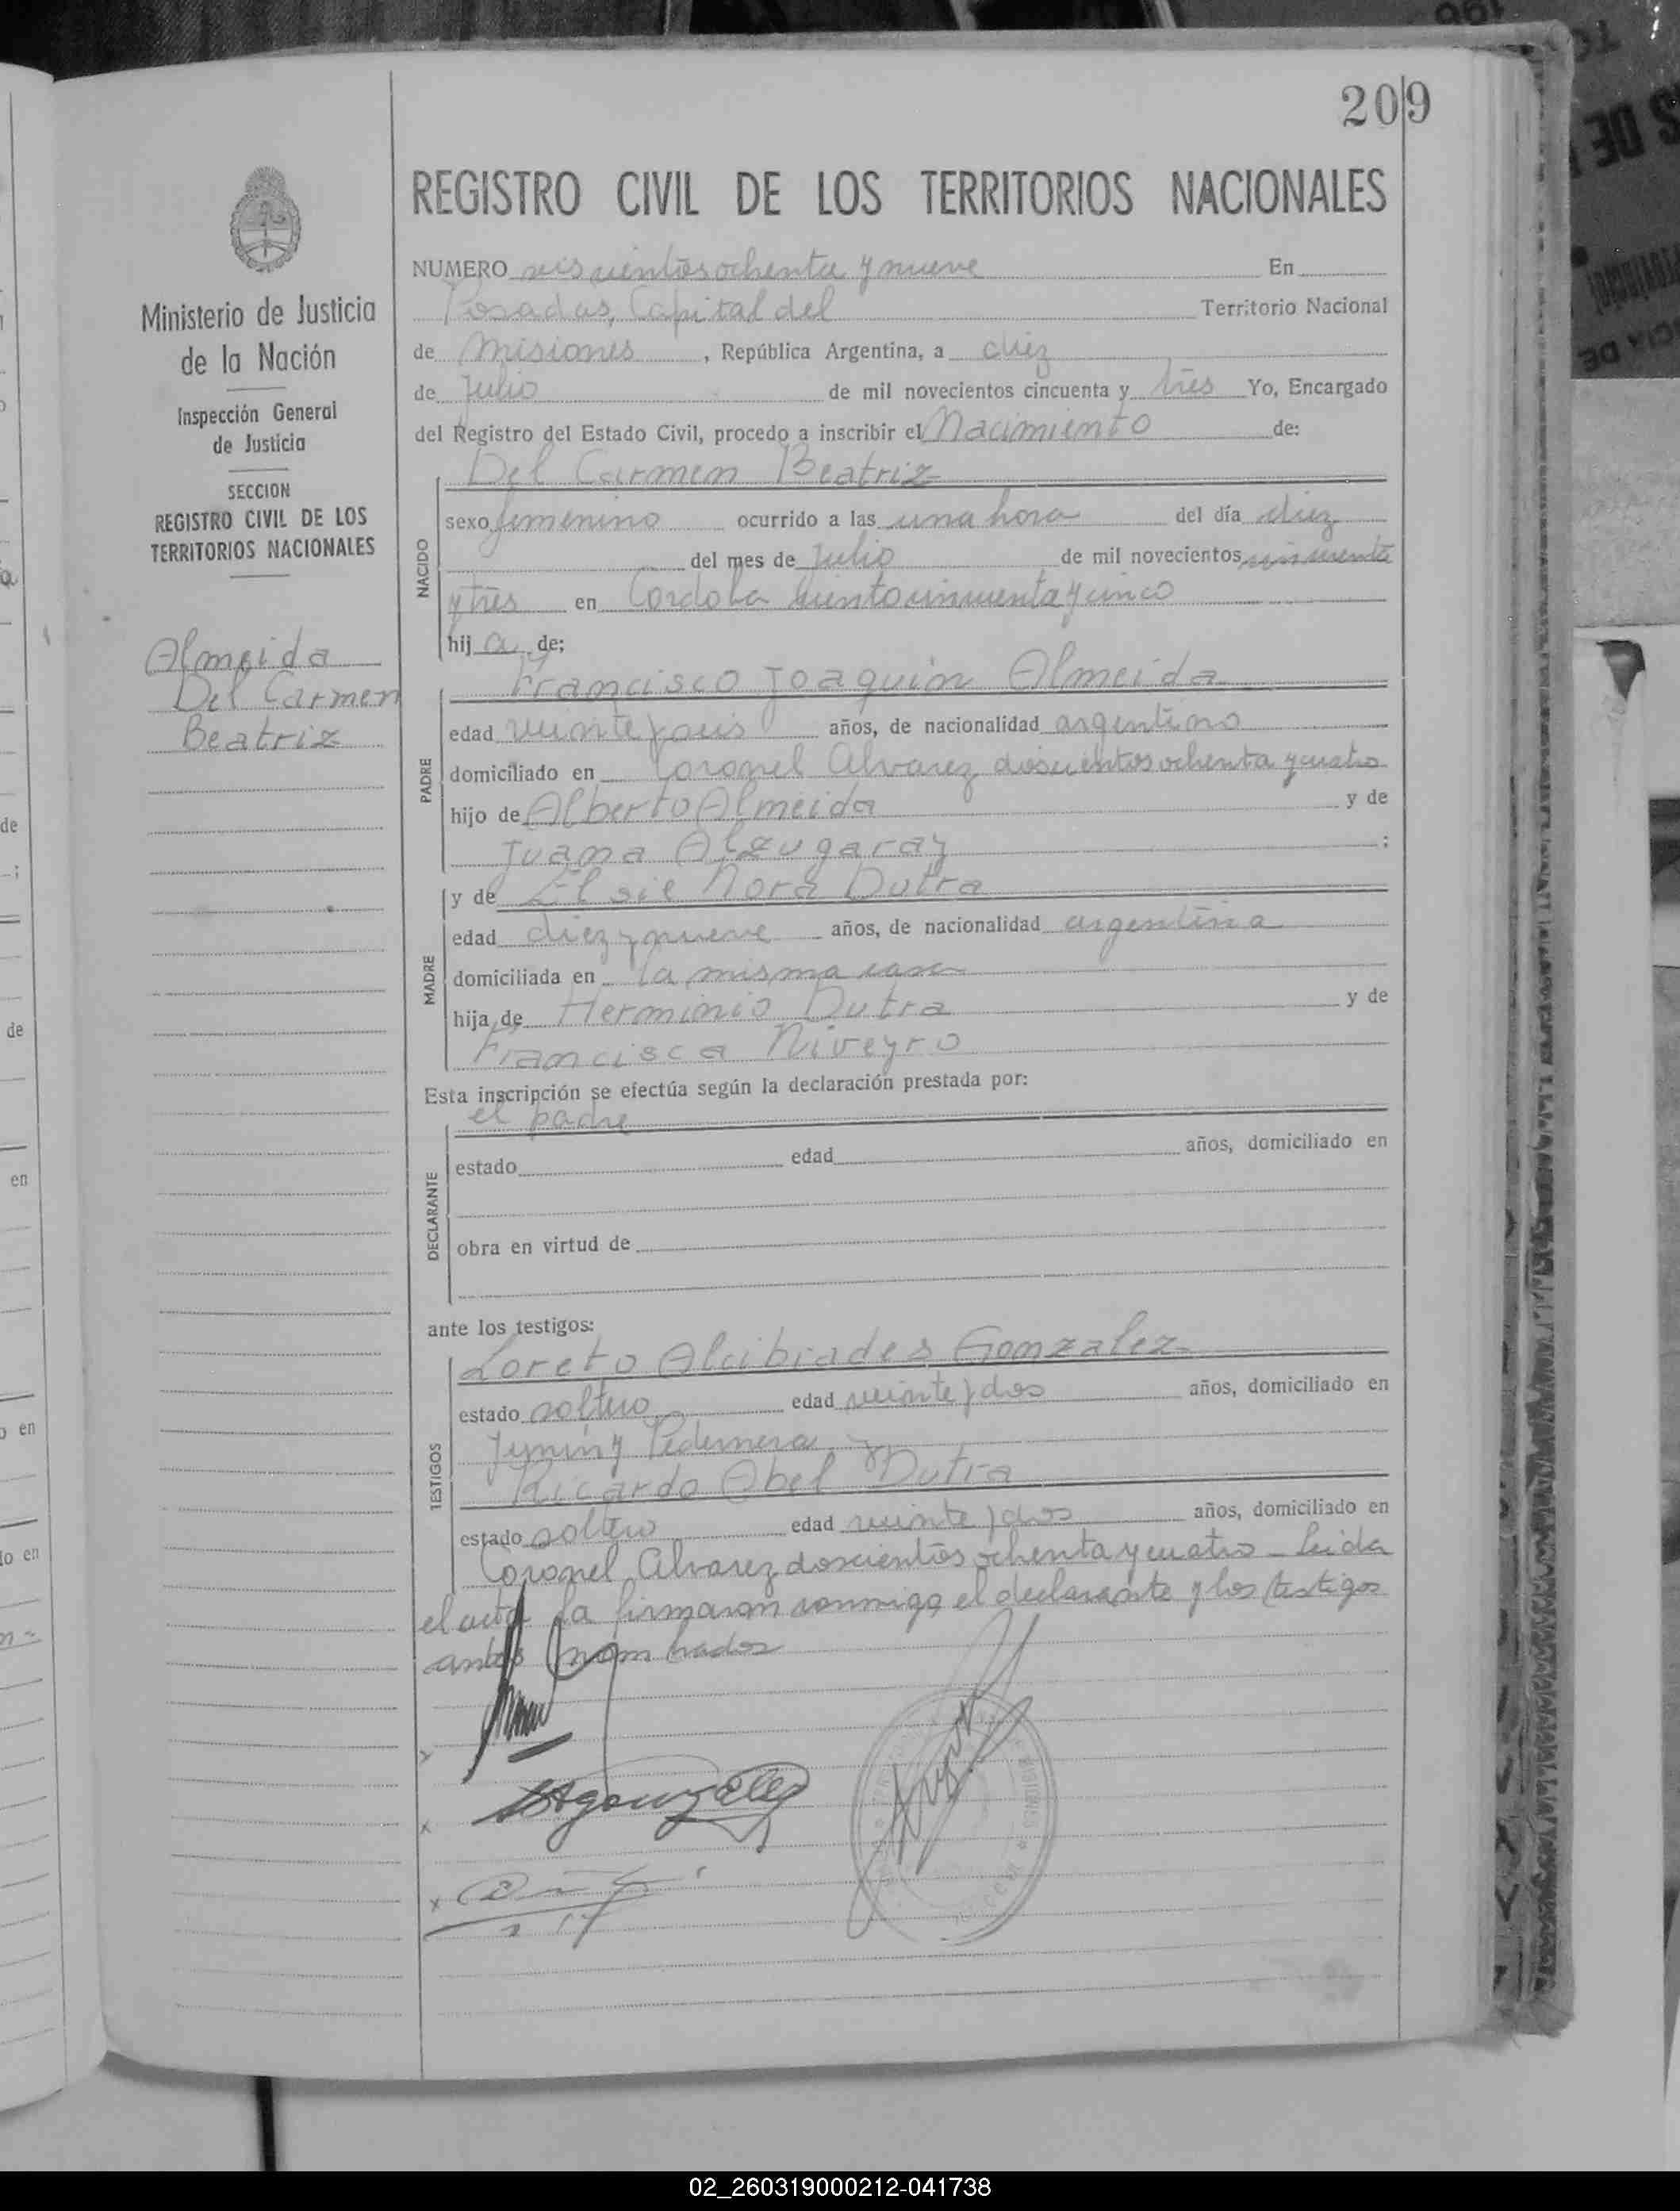 209
REGISTRO CIVIL DE LOS TERRITORIOS NACIONALES
Ministerio de Justicia
de la Nación
Inspección General
de Justicia
SECCION
REGISTRO CIVIL DE LOS
TERRITORIOS NACIONALES
Almeida
Del Carmen
Beatriz
NUMERO seiscientos ochenta y nueve En
Posadas, Capital del Territorio Nacional
de Misiones, República Argentina, a diez
de Julio de mil novecientos cincuenta y tres Yo, Encargado
del Registro del Estado Civil, procedo a inscribir el Nacimiento de:
NACIDO
Del Carmen Beatriz
sexo femenino ocurrido a las una hora del día diez
del mes de Julio de mil novecientos cincuenta
y tres en Cordoba ciento cincuenta y cinco
hij a de;
PADRE
Francisco Joaquin Almeida
edad veinte y seis años, de nacionalidad argentino
domiciliado en Coronel Alvarez doscientos ochenta y cuatro
hijo de Alberto Almeida y de
Juana Alzugaray ;
MADRE
y de Elsie Nora Dutra
edad diez y nueve años, de nacionalidad argentina
domiciliada en la misma casa
hija de Herminio Dutra y de
Francisca Niveyro
Esta inscripción se efectúa según la declaración prestada por:
DECLARANTE
el padre
estado edad años, domiciliado en
obra en virtud de
ante los testigos:
TESTIGOS
Loreto Alcibiades Gonzalez
estado soltero edad veinte y dos años, domiciliado en
Junin y Pedernera, y
Ricardo Abel Dutra
estado soltero edad veinte y dos años, domiciliado en
Coronel Alvarez doscientos ochenta y cuatro - Leida
el acta la firmaron conmigo el declarante y los testigos
antes nombrados
x
x LAGonzalez
x
02_260319000212-041738